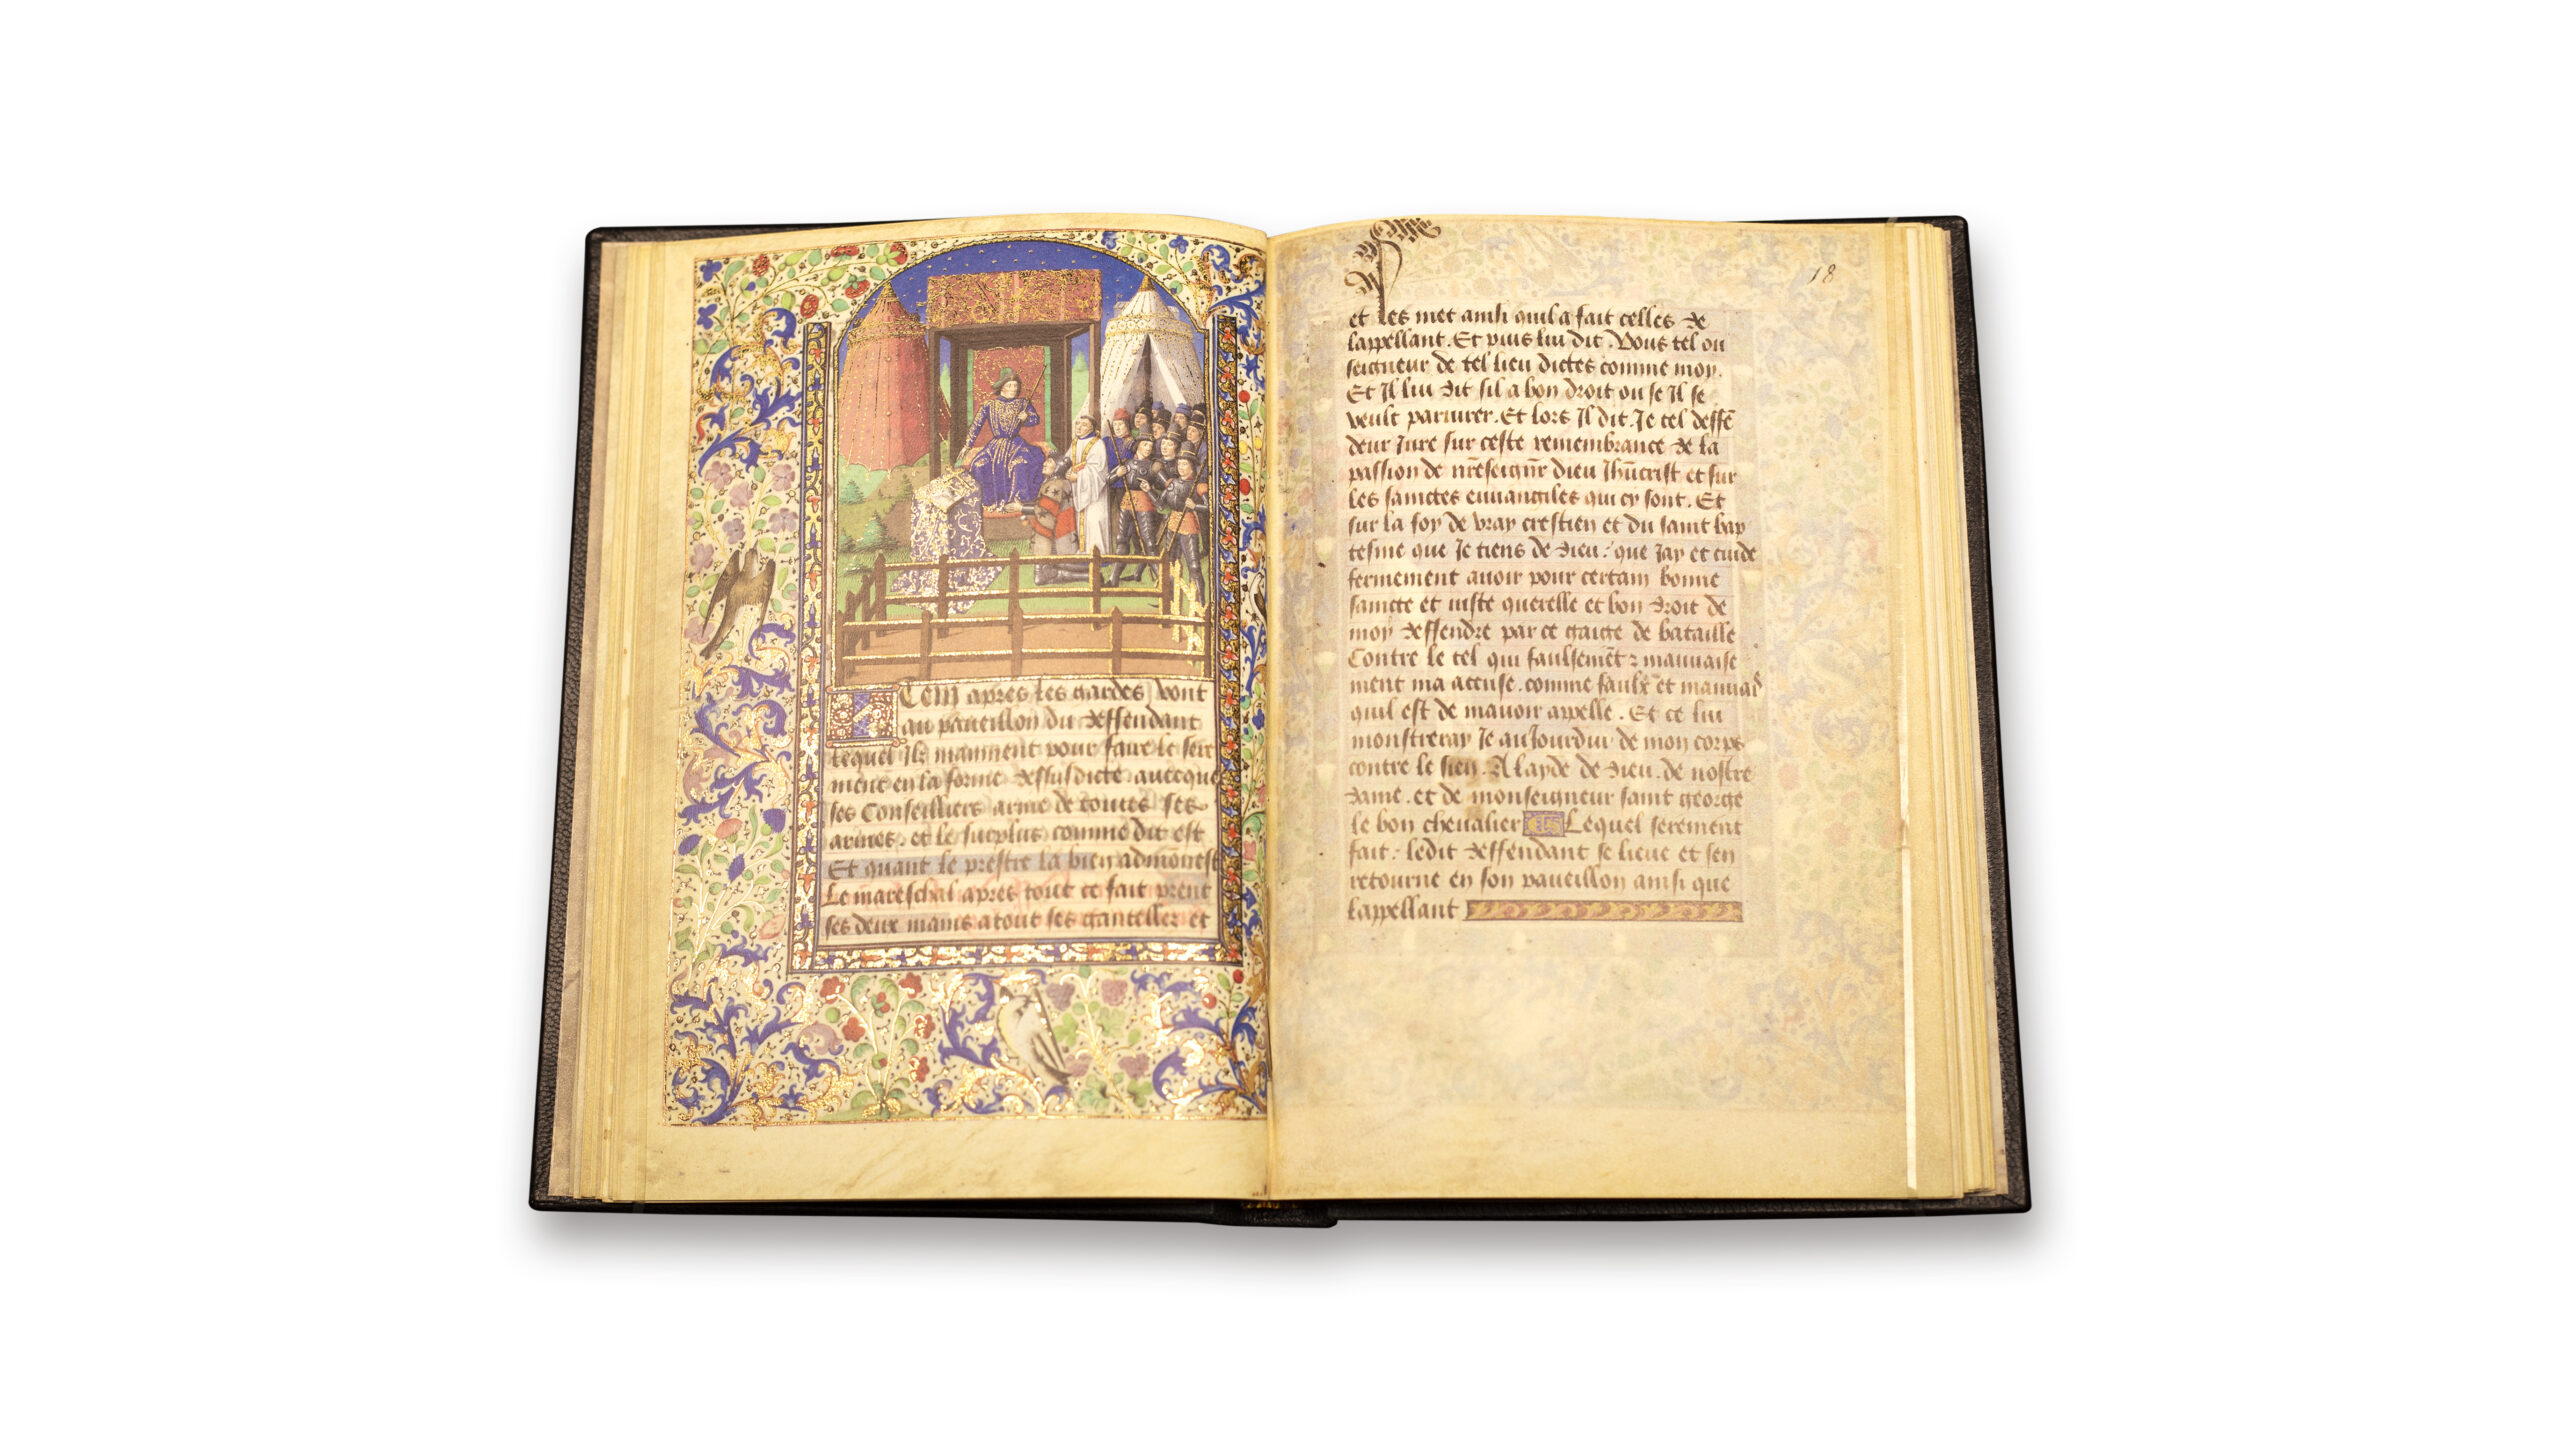 Item apres les gardes vont
au paveillon du deffendant
lequel Ilz mainnent pour faire le sere
ment en la forme dessusdicte auecques
ses Conseilliers arme de toutes ses
armes. et le surplus comme dit est
Et quant le prestre la bien admoneste
Le mareschal apres tout ce fait prent
ses deux mains atout ses gantellez et
18
et les met ainsi quil a fait celles de
lappellant. Et puis lui dit. Vous tel ou
seigneur de tel lieu dictes comme moy.
Et Il lui dit sil a bon droit ou se Il se
veult pariurer. Et lors Il dit. Je tel deffē
deur Jure sur ceste remembrance de la
passion de nr̄eseignr̄ dieu Jhūcrist et sur
les sainctes euuangiles qui cy sont. Et
sur la foy de vray crestien et du saint bap
tesme que Je tiens de dieu: que Jay et cuide
fermement auoir pour certain bonne
saincte et iuste querelle et bon droit de
moy deffendre par ce gaige de bataille
Contre le tel qui faulsemēt ⁊ mauuaise
ment ma accuse. comme faulx et mauuais
quil est de mauoir appelle. Et ce lui
monstreray Je auJourdui de mon corps
contre le sien. A layde de dieu. de nostre
dame. et de monseigneur saint george
le bon cheualier Lequel serement
fait: ledit deffendant se lieue et sen
retourne en son paueillon ainsi que
lappellant